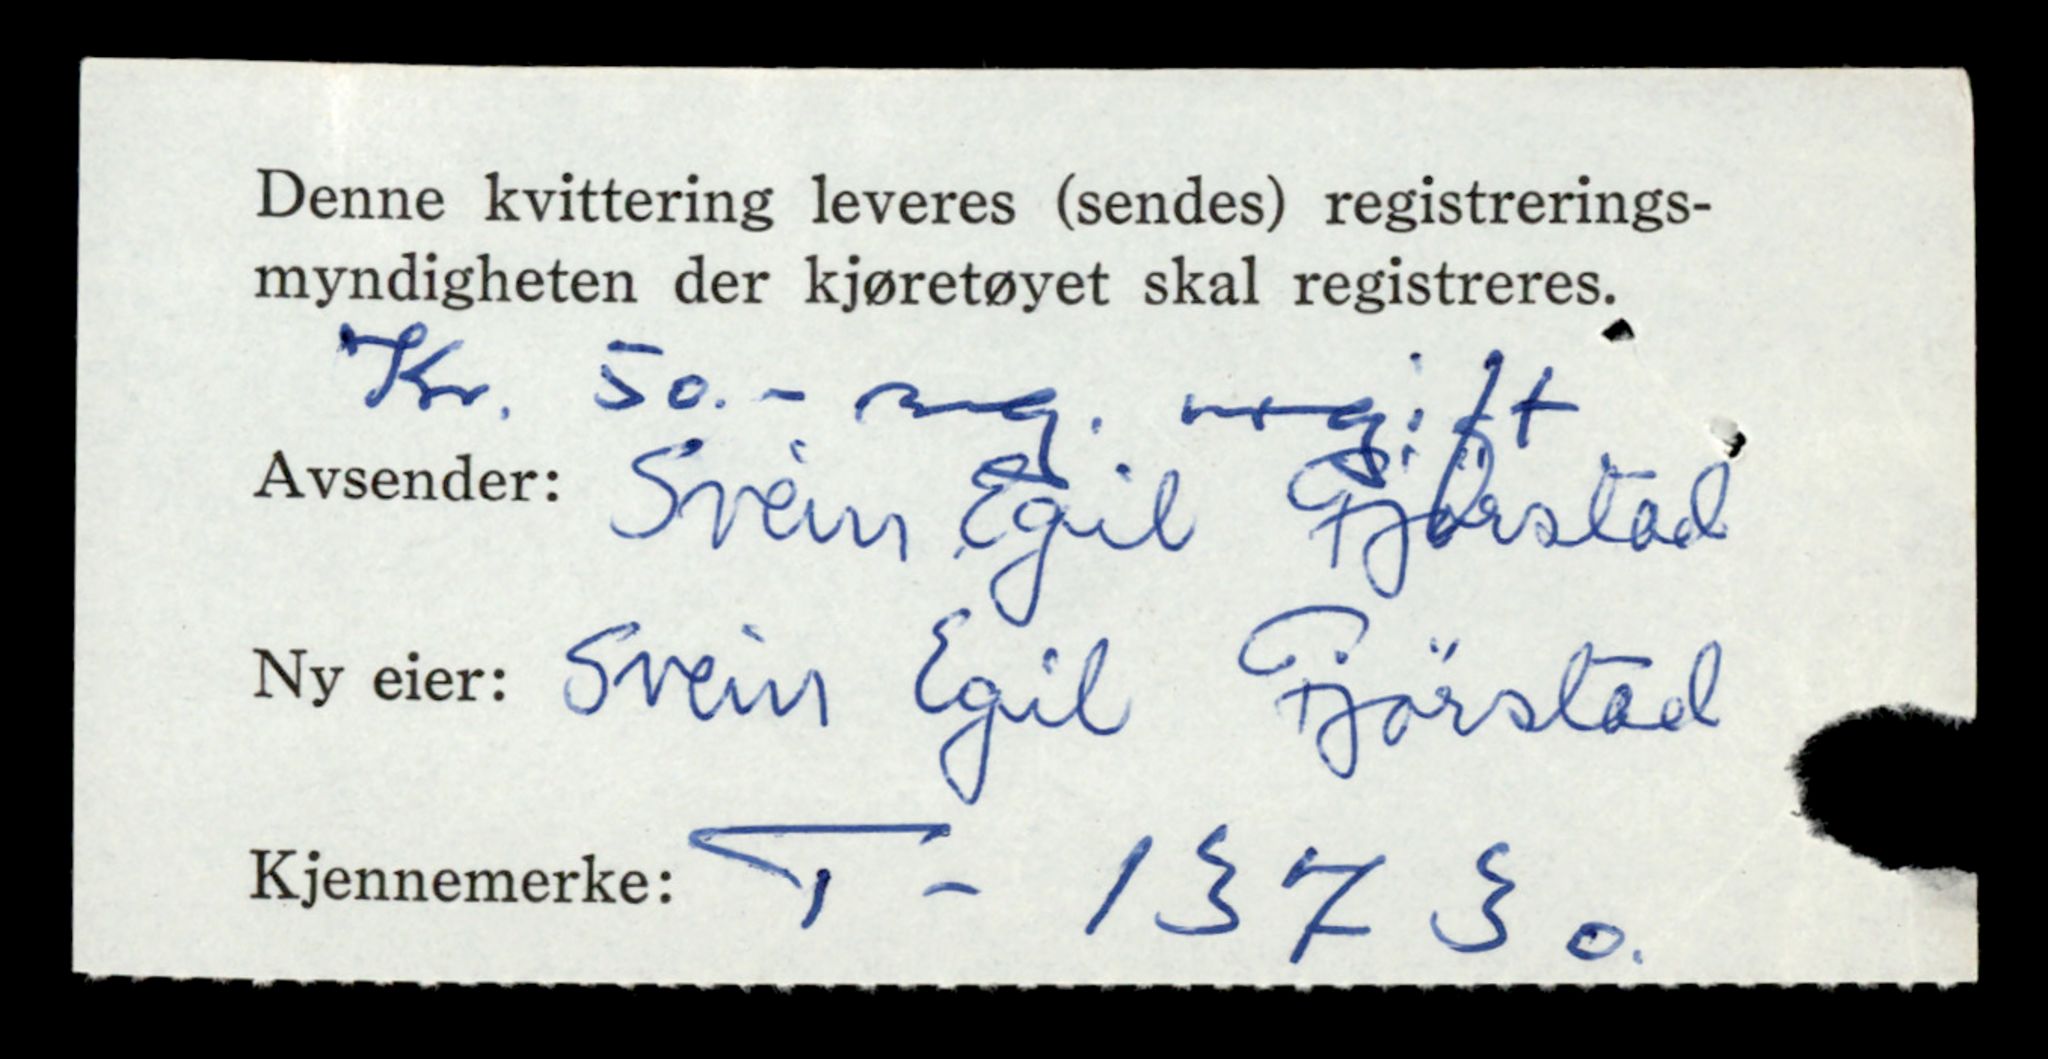 Denne kvittering leveres (sendes) registrerings-
myndigheten der kjøretøyet skal registreres.
Kr. 50.-
Avsender: Svein Egil Fjörstad
Ny eier: Svein Egil Fjörstad
Kjennemerke: T - 13730.